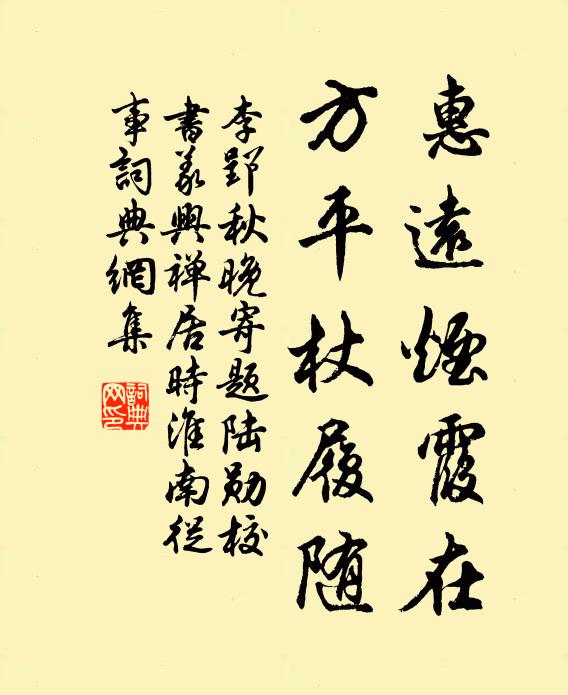 惠遠煙霞在
方平杖履随
李郢秋晚寄題陆勋校
書義興禅居時淮南從
事詞典網集
詞典网印